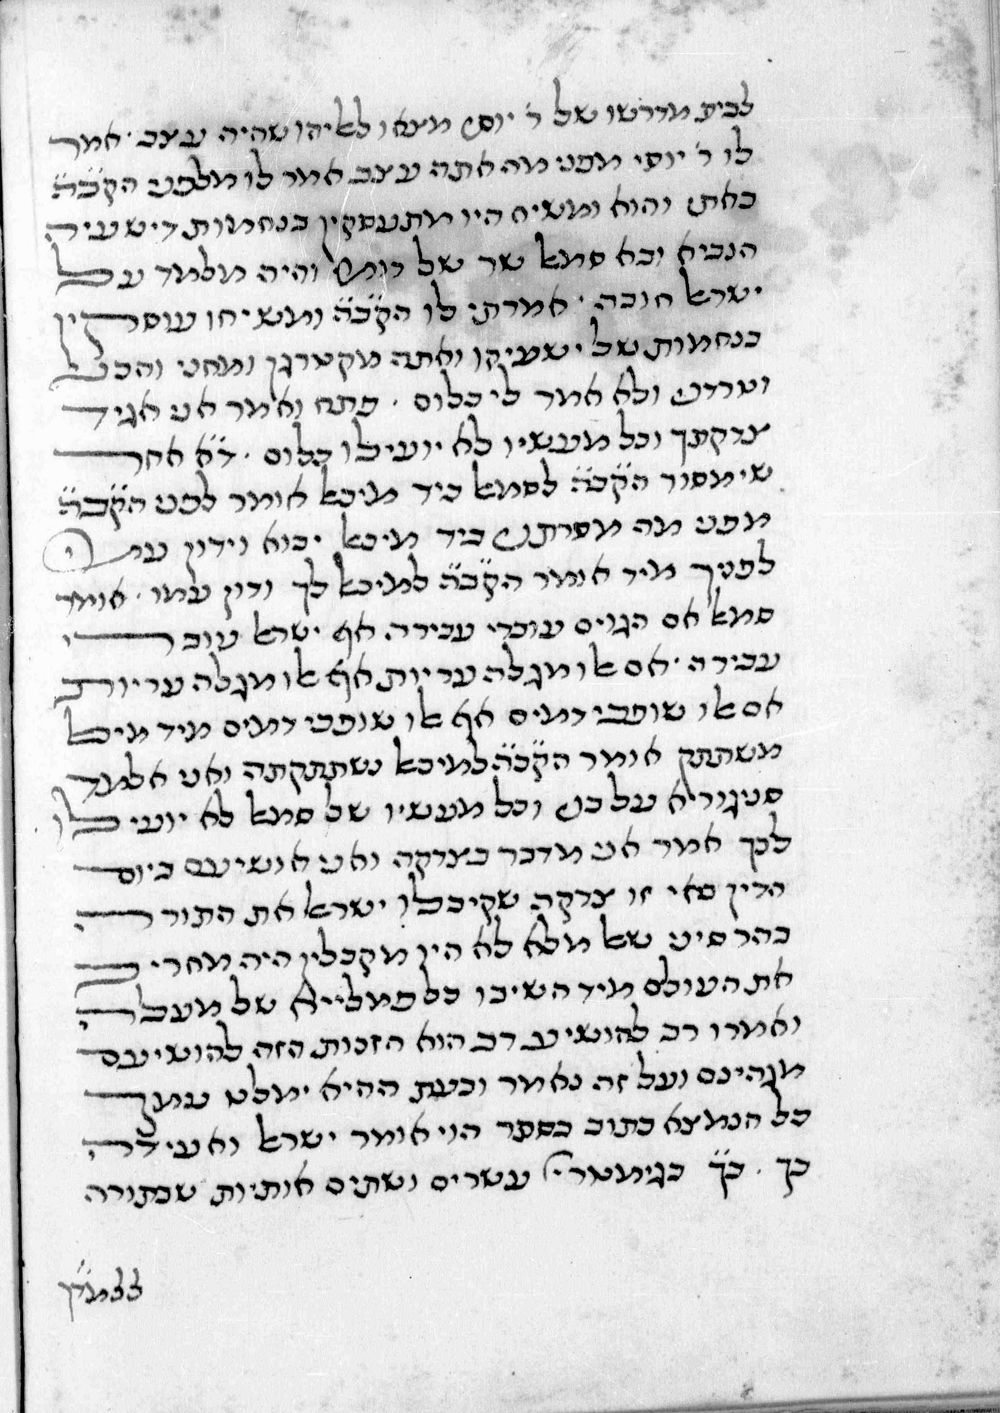 לבית מדרשו של ר׳ יוסי מצאו לאליהו שהיה עצב · אמר
לו ר׳ יוסי מפני מה אתה עצב אמר לו מלפני הקב״ה
באתי והוא ומשיח היו מתעסקין בנחמות דישעיה
הנביא ובא סמאל שר של רומי והיה מלמד על
ישראל חובה · אמרתי לו הקב״ה ומשיחו עוסקין
בנחמות של ישעיהו ואתה מקטרגן ומחני והכני
וטרדני ולא אמר לי כלום · פתח ואמר אני אגיד
צדקתך וכל מעשיו לא יועילו כלום · ד״א אחר
שימסור הקב״ה לסמאל ביד מיכאל אומר לפני הקב״ה
מפני מה מסרתני ביד מיכאל יבוא וידון עמי
לפניך מיד אומר הקב״ה למיכאל לך ודון עמו · אומר
סמאל אם הגוים עוברי עבירה אף ישראל עוברי
עבירה · אם אלו מגלה עריות אף אלו מגלה עריות
אם אלו שופכי דמים אף אלו שופכי דמים מיד מיכאל
משתתק אומר הקב״ה למיכאל נשתתקתה ואני אלמד
סניגוריא על בני וכל מעשיו של סמאל לא יועילו
לכך אמר אני מדבר בצדקה ואני אושיעם ביום
הדין באי זו צדקה שקיבלו ישראל את התורה
בהר סיני שאל מלא לא היו מקבלין היה מחריב
את העולם מיד השיבו כל פמלייא של מעלה
ואמרו רב להושיע רב הוא הזכות הזה להושיעם
מגהינם ועל זה נאמר ובעת ההיא ימלט עמך
כל הנמצא כתוב בספר הוי אומר ישראל ואעידה
בך · ב״ך בגימטרי׳ עשרים ושתים אותיות שבתורה